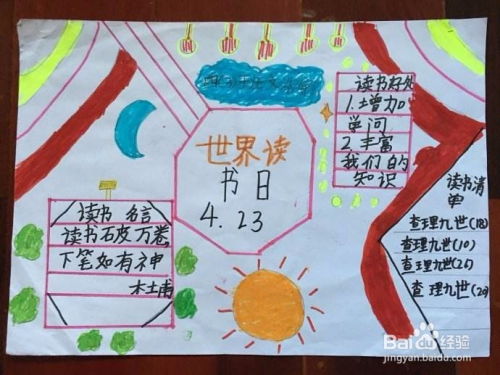 世界读
书日
4.23
读书 名言
读书破万卷
下笔如有神
杜甫
读书好处
1.增加
学问
2.丰富
我们的
知识
读书清
单
查理九世(18)
查理九世(10)
查理九世
查理九世(20)
Baidu经验
jingyan.baidu.com